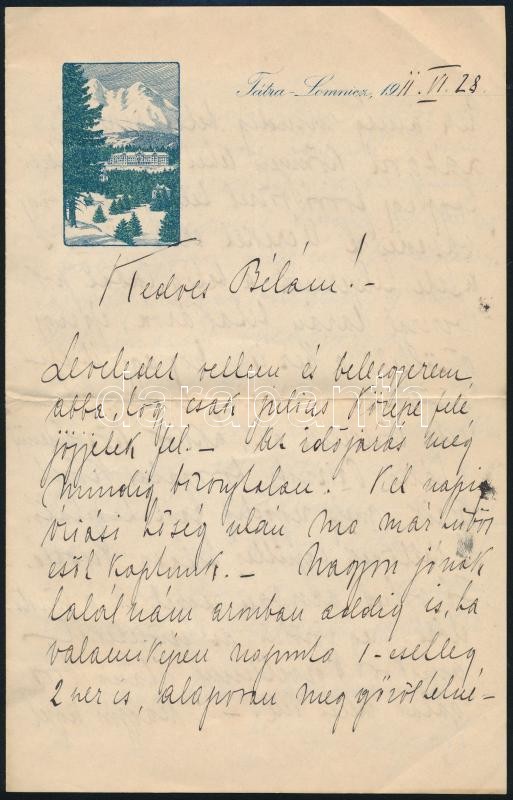 Tátra-Lomnicz, 1911. VI. 28.
Kedves Bélám! -
Leveledet vettem és beleegyezem
abba, hogy csak julius közepe felé
jöjjetek fel. - Az időjárás még
mindig bizonytalan. Két napi
óriási hőség után ma már
esőt kaptunk. - Nagyon jónak
találnám azonban addig is, ha
valamiképen naponta 1-esetleg
2szer is, alaposan meggőzöltetné-
darabanth